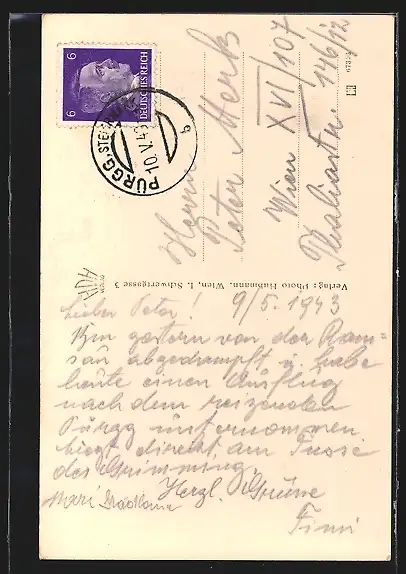 6
6
DEUTSCHES REICH
PÜRGG, STEIERMARK
10. V. 43
b
Herrn
Peter Merk
Wien XVI/107
Thaliastr. 146/12
673
HUHA
VERLAG
Verlag: Photo Huhmann, Wien, I. Schwertgasse 3
Lieber Peter! 9/5. 1943
Bin gestern von der Ram=
sau abgedampft u. habe
heute einen Ausflug
nach dem reizenden
Pürgg unternommen.
Liegt direkt am Fusse
des Grimming.
Herzl. Grüsse
Mari
Finni